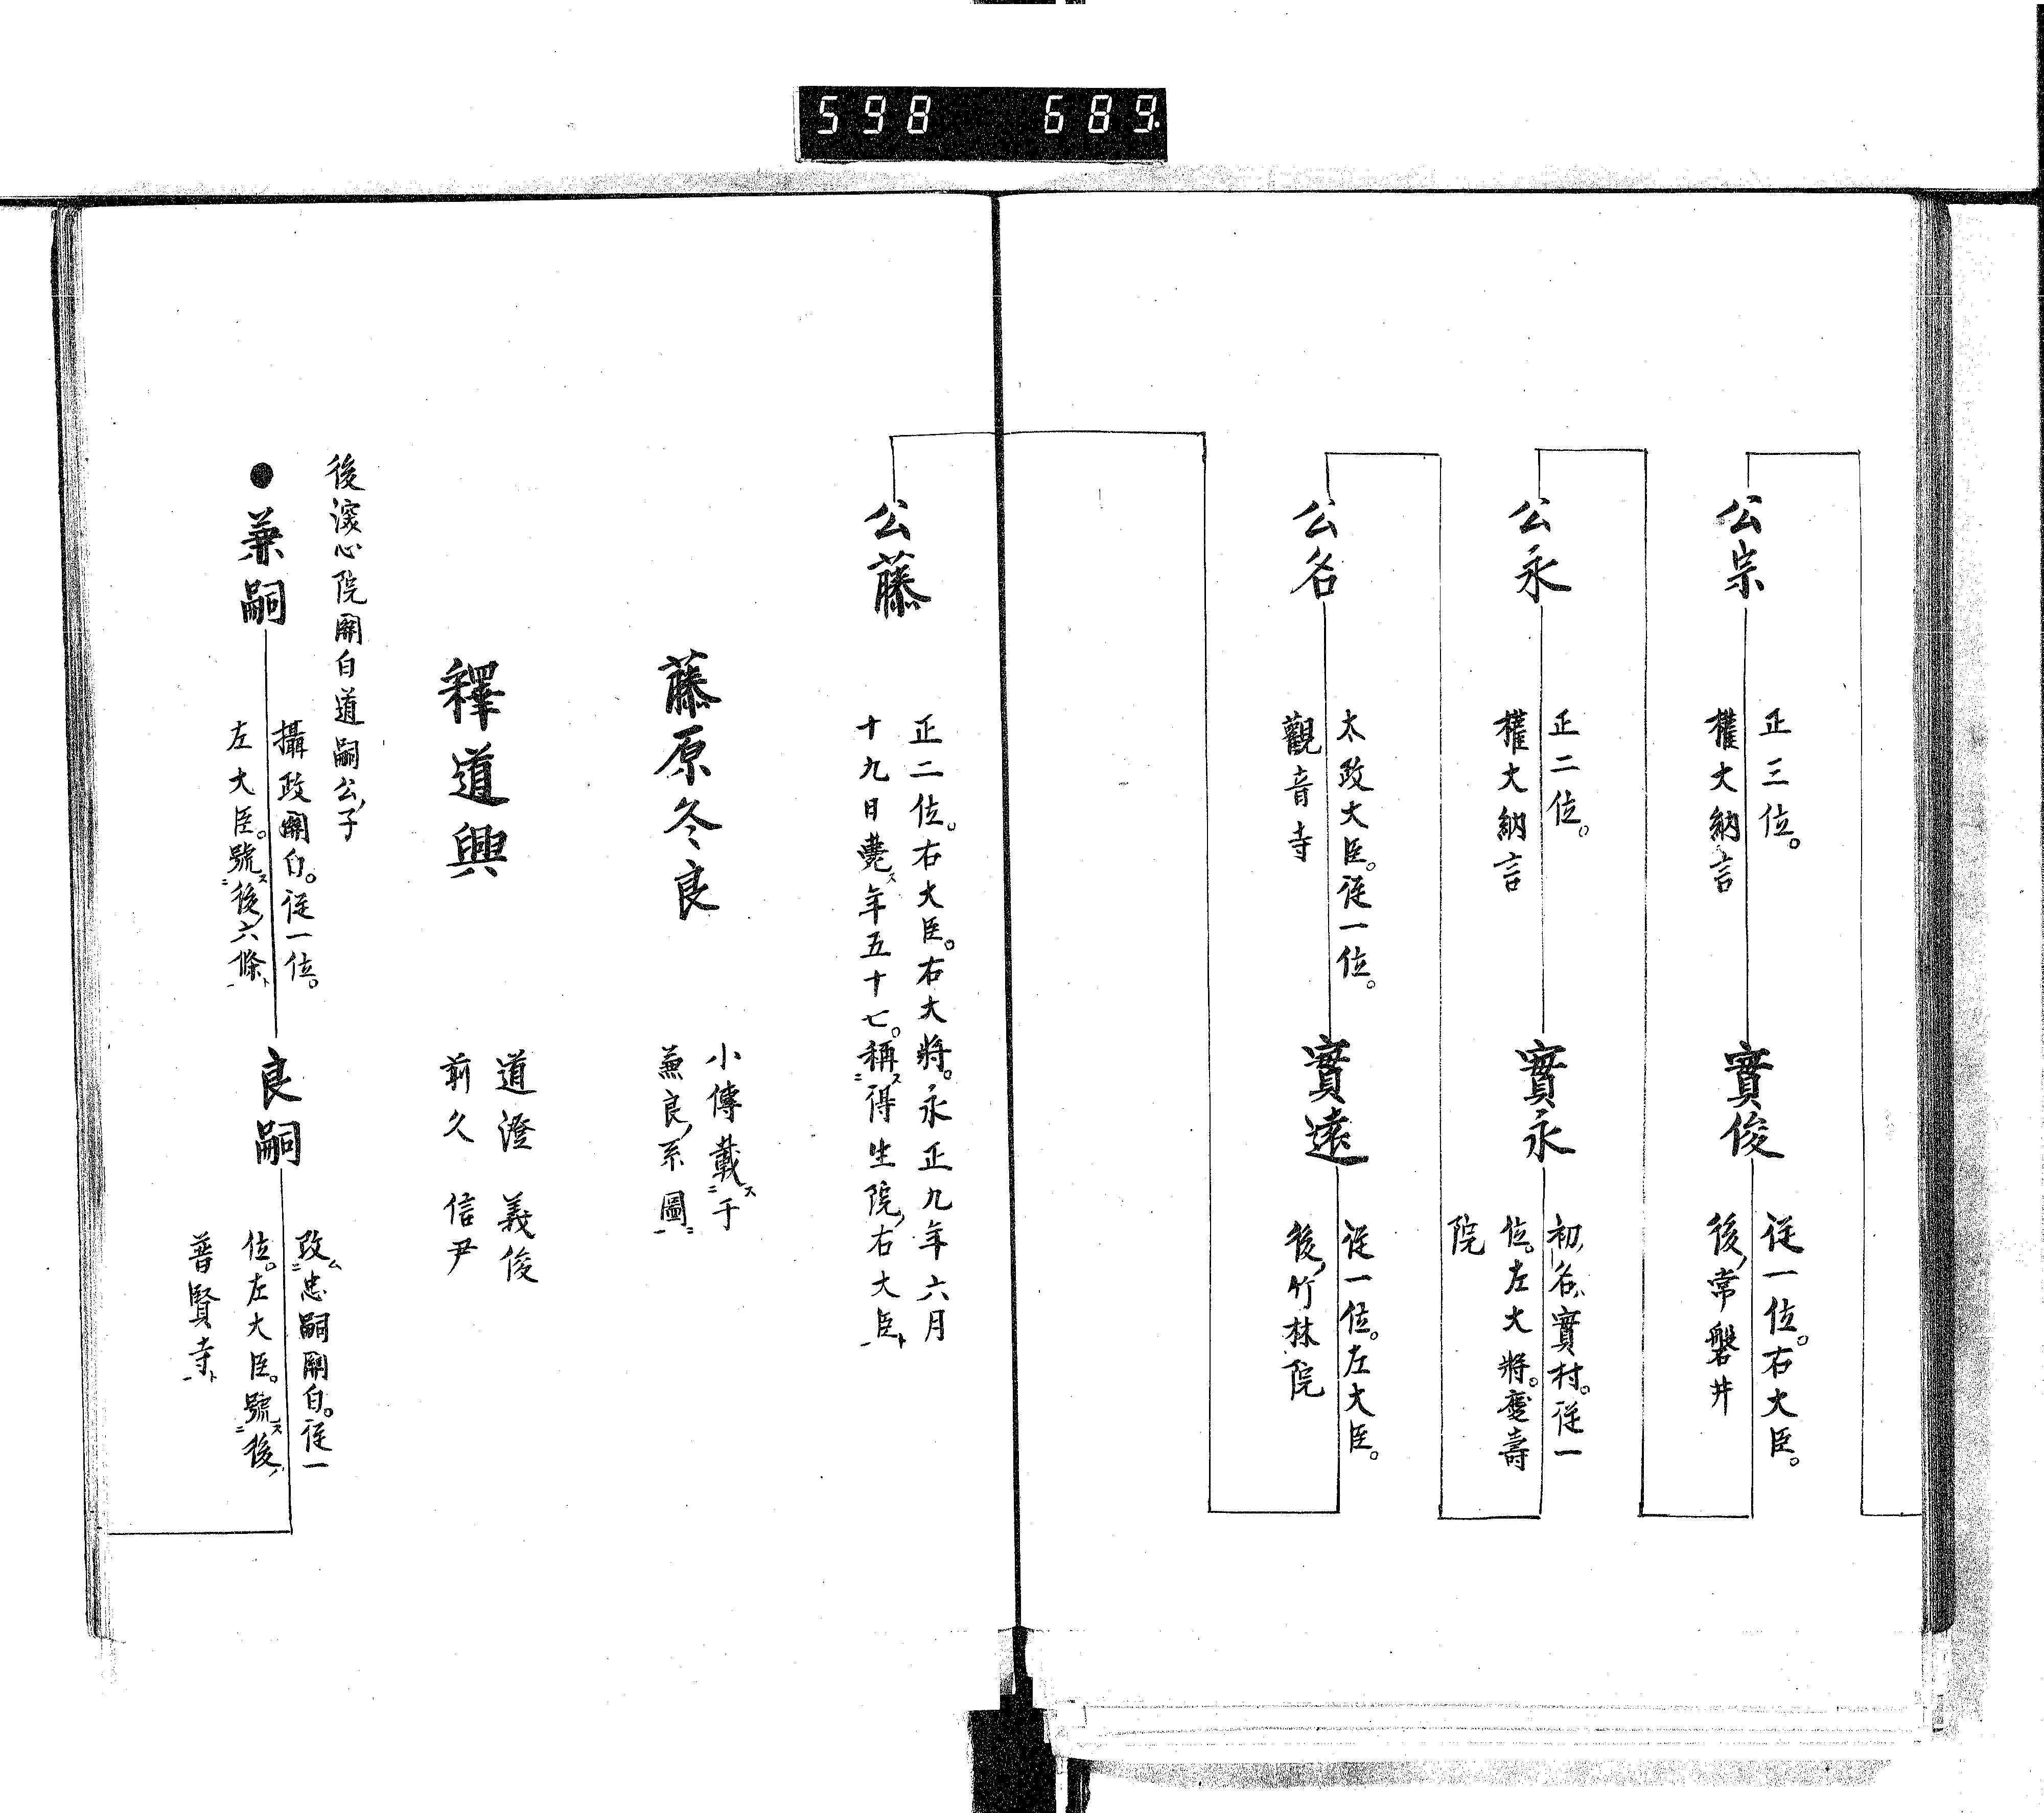 598 689.
公宗
正三位。
權大納言
實俊
從一位。右大臣。
後ノ常磐井
公永
正二位。
權大納言
實永
初ノ名ハ實村。從一
位。左大將。
院
公名
太政大臣。從一位。
觀音寺
實遠
從一位。左大臣。
後ノ竹林院
公藤
正二位。右大臣。右大將。永正九年六月
十九日薨ス年五十七。稱ス得生院ノ右大臣ト
藤原冬良
小傳載ス于
兼良ノ系圖ニ
釋道興
道澄 義俊
前久 信尹
後深心院關白道嗣公ノ子
●兼嗣
攝政關白。從一位。
左大臣。號ス後ノ六條ト
良嗣
改ム忠嗣關白。從一
位。左大臣。號ス後ノ
普賢寺ト